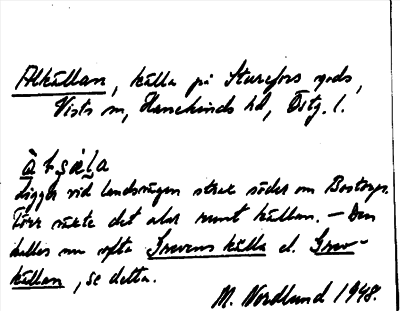 Alkällan, källa på Sturefors gods,
Vists sn, Hanekinds hd, Östg. l.
àlɕäla
Ligger vid landsvägen strax söder om Bostorp.
Förr växte det alar runt källan. – Den
kallas nu ofta Grevens källa el. Grev-
källan, se detta.
M. Nordlund 1948.